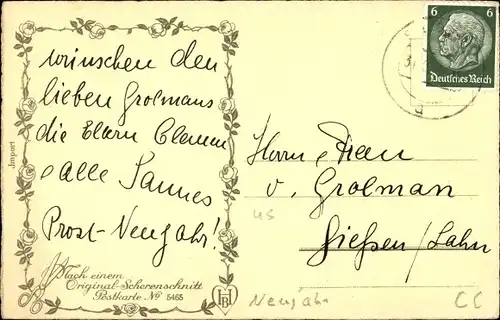 wünschen den
lieben Grolmans
die Eltern Clemm
alle Tannes
Prost-Neujahr!
Nach einem
Original-Scherenschnitt
Postkarte No 5465
Import
HB
6 6
Deutsches Reich
Herrn u. Frau
v. Grolman
Gießen/Lahn
Neujahr
CC